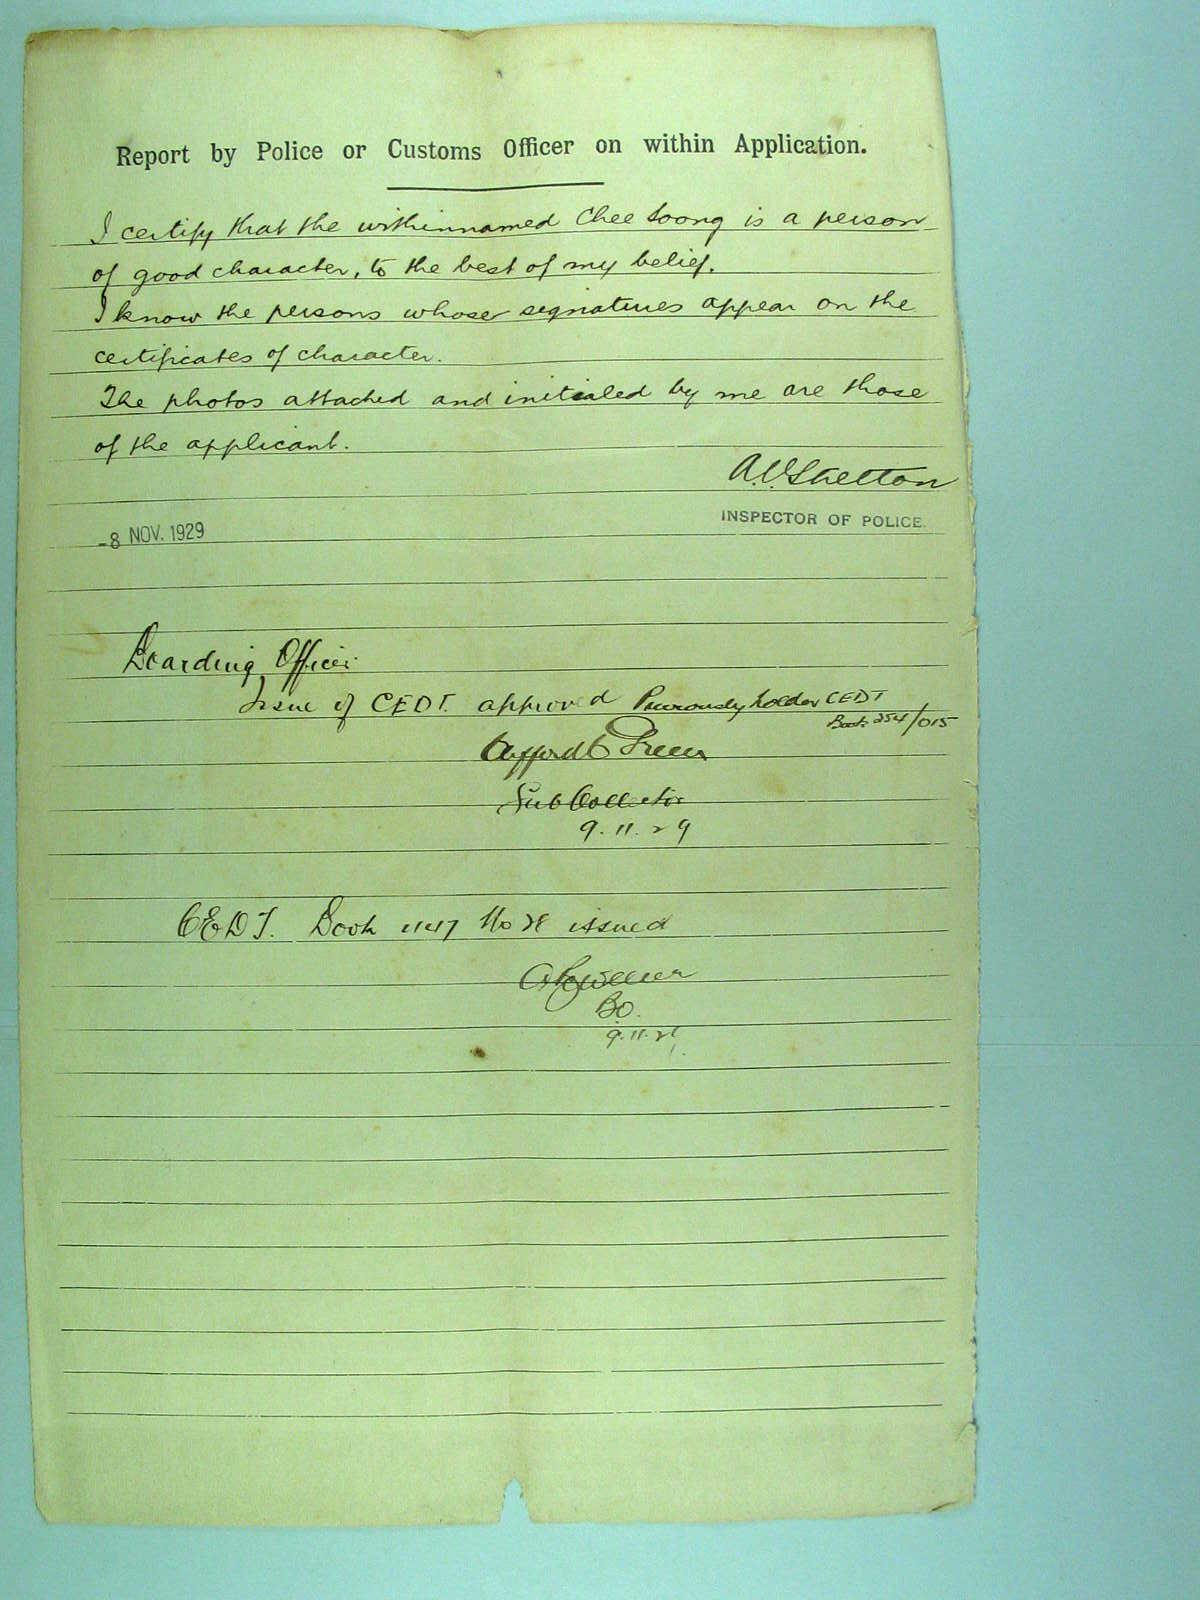 Report by Police or Customs Officer on within Application.
I certify that the withinnamed Chee Soong is a person
of good character, to the best of my belief.
I know the persons whose signatures appear on the
certificates of character.
The photos attached and initialed by me are those
of the applicant.
A.V. Shelton
INSPECTOR OF POLICE.
-8 NOV. 1929
Boarding Officer
Issue of CEDT. approved Previously holder CEDT
Book 254/015
Sub Collector
9.11.29
CEDT. Book No 28 issued
BO.
9.11.29